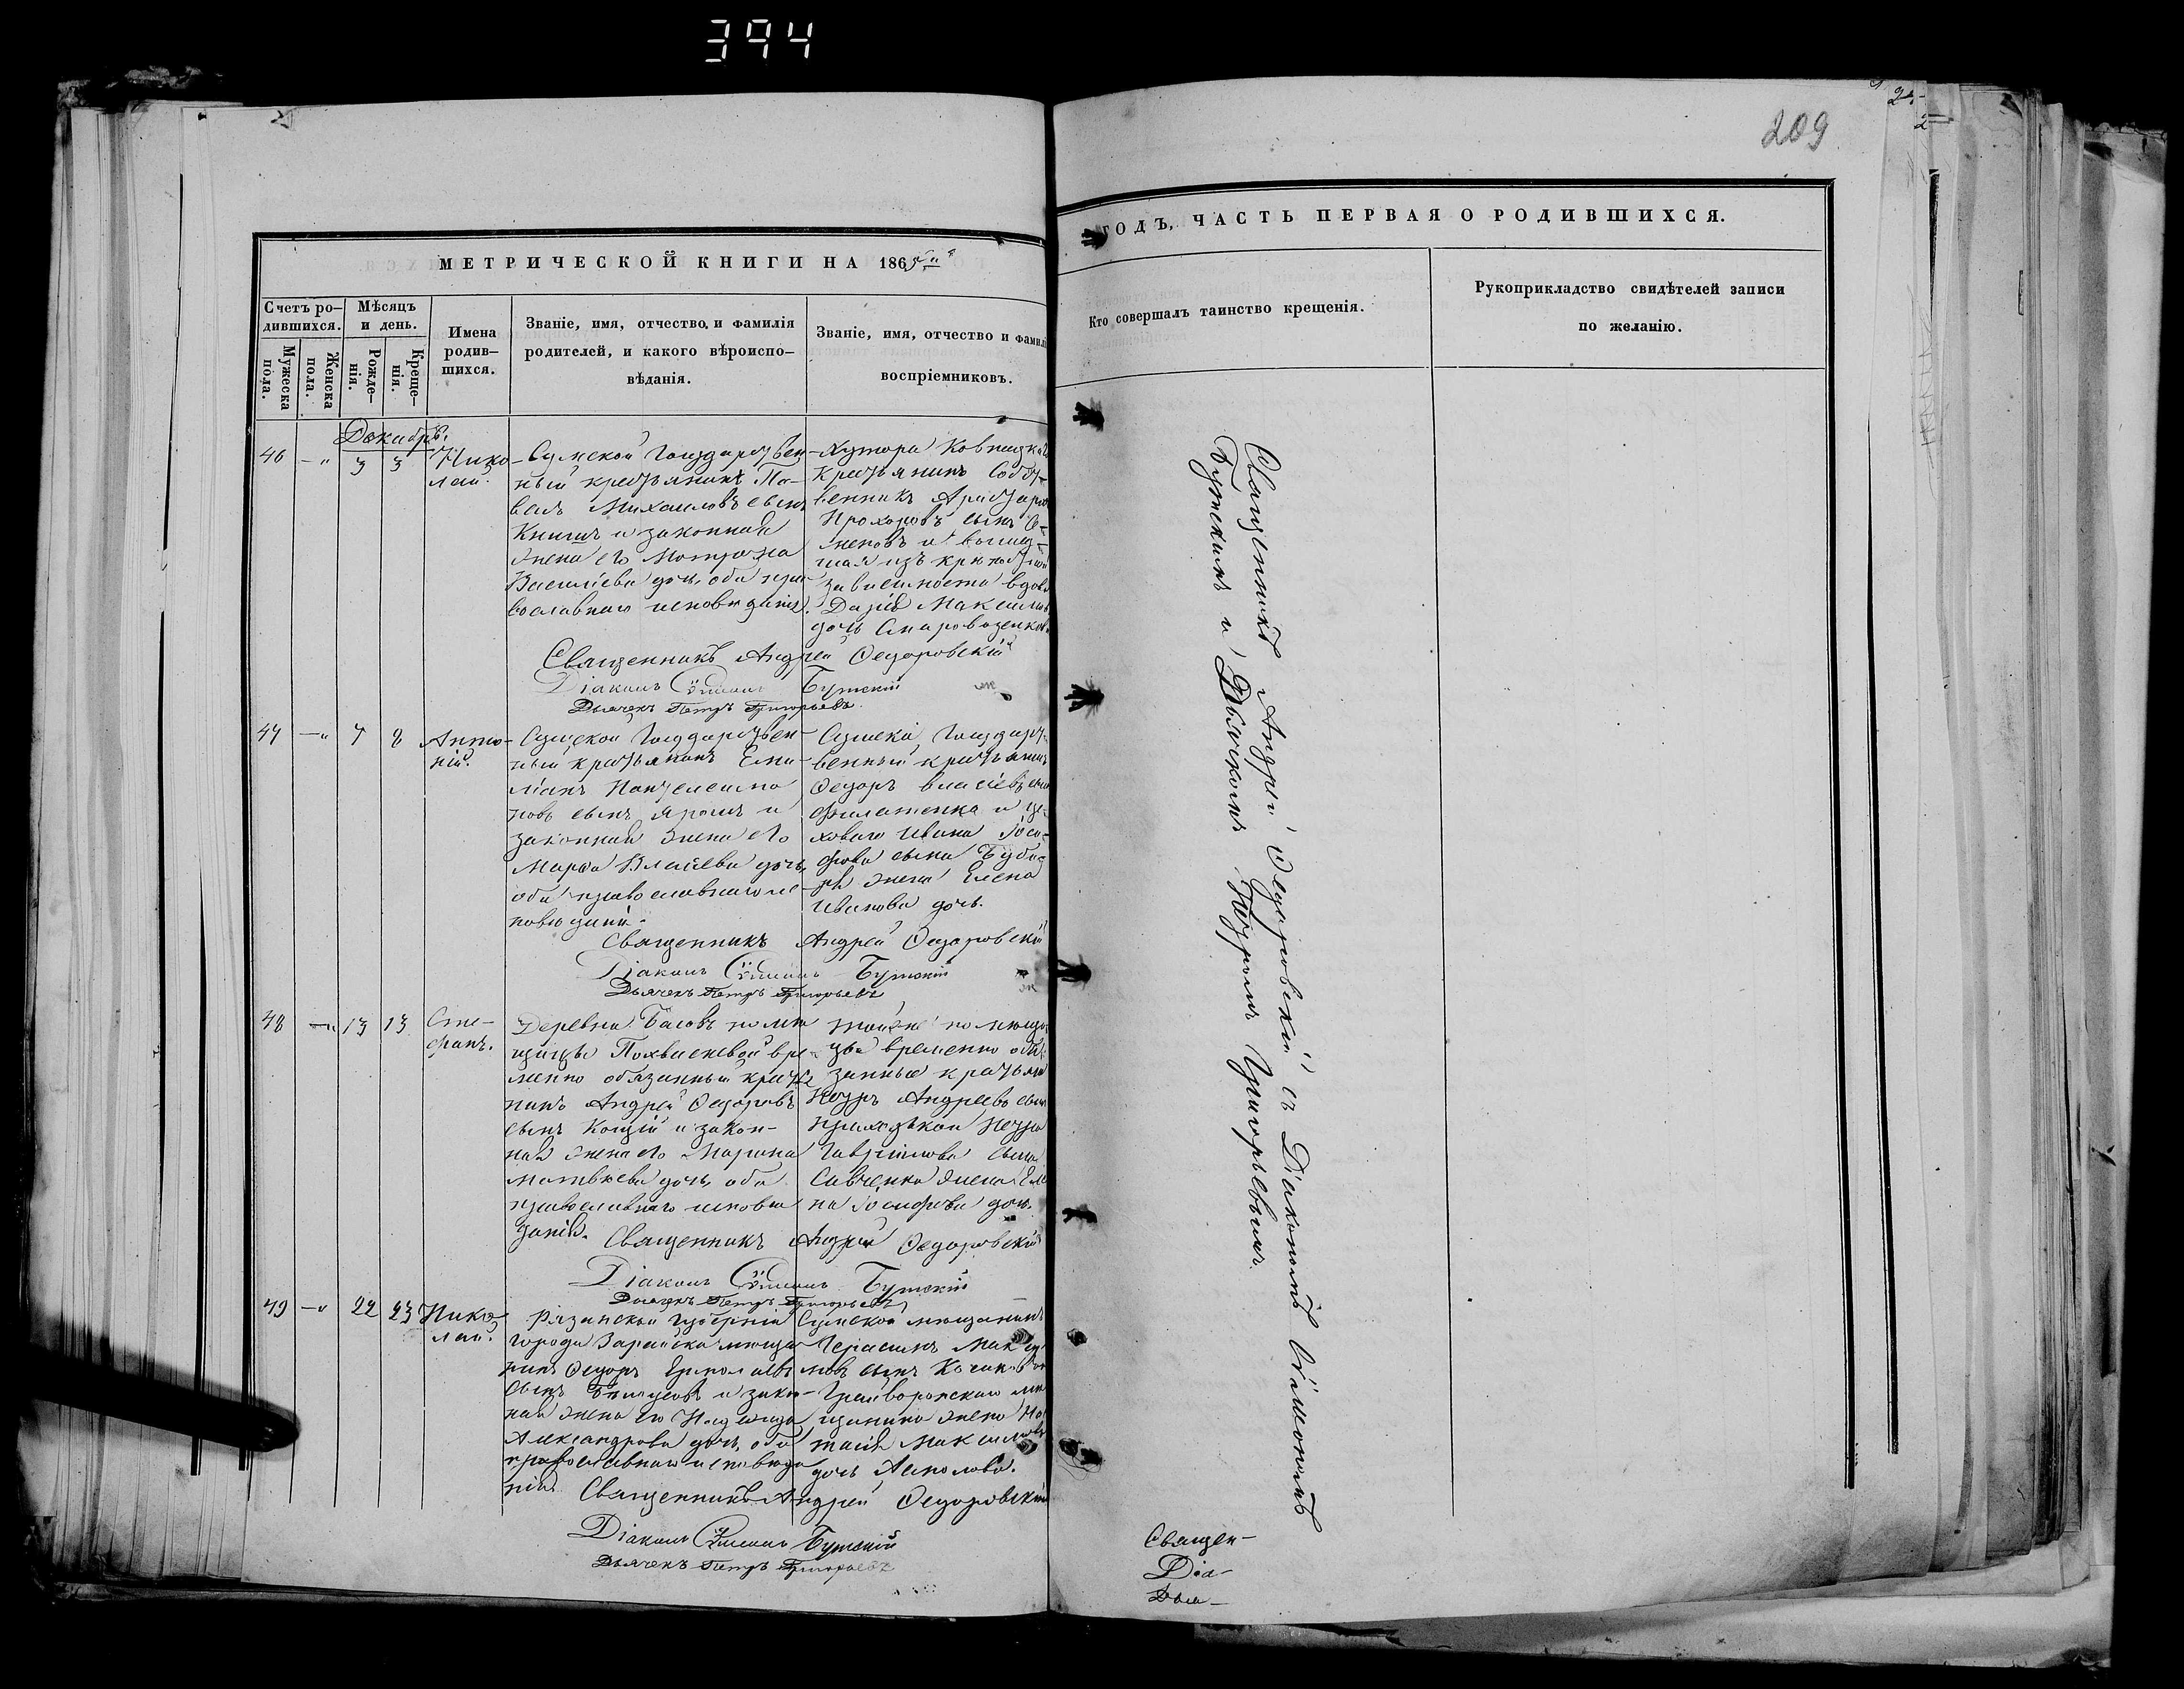 394
209
МЕТРИЧЕСКОЙ КНИГИ НА 1865
ГОДЪ, ЧАСТЬ ПЕРВАЯ О РОДИВШИХСЯ.
Счетъ ро-
дившихся.
Мужеска пола.
Женска пола.
Мѣсяцъ
и день.
Рожде-
нія.
Креще-
нія.
Имена
родив-
шихся.
Званіе, имя, отчество, и фамилія
родителей, и какого вѣроиспо-
вѣданія.
Званіе, имя, отчество и фамил
воспріемниковъ.
Кто совершалъ таинство крещенія.
Рукоприкладство свидѣтелей записи
по желанію.
Декабрь.
46 3 3
Нико-
лай.
Сумской Государствен-
ный крестьянинъ Па-
велъ Михаиловъ сынъ
и законная
жена его Матрона
Василіева дочь, оба пра-
вославнаго исповѣданія.
Хутора
Крестьянинъ Собст-
венникъ
Прохоровъ сынъ Се-
меновъ и вышед-
шая изъ крѣпостной
зависимости вдова
Дарія Максимов
дочь
Священникъ Андрей Ѳедоровскій
Діаконъ Сѵмеонъ Бутскій
Дьячекъ Петръ Григорьевъ
47 7 8
Анто-
ній.
Сумской Государствен-
ный крестьянинъ Еми-
ліанъ Пантелеимо
новъ сынъ и
законная жена его
Марѳа Власіева дочь,
оба православнаго ис-
повѣданія.
Сумскій Государст-
венный крестьянинъ
Ѳедоръ Власіевъ сынъ
Филатенко и це-
ховаго Ивана Іоси-
фова сына
жена Елена
Иванова дочь.
Священникъ Андрей Ѳедоровскій
Діаконъ Сѵмеонъ Бутскій
Дьячекъ Петръ Григорьевъ
48 13 13
Сте-
фанъ.
Деревни Басовъ помѣ
щицы вре-
менно обязанный кресть
нинъ Андрей Ѳедоровъ
сынъ и закон-
ная жена его Марина
Матвѣева дочь, оба
православнаго исповѣ
данія.
той же помѣщи
цы временно обя-
занные крестьян
Петръ Андреевъ сынъ
Приходькои Петра
Гавріилова сына
Савченка жена Еле
на Іосифова дочь.
Священникъ Андрей Ѳедоровскій
Діаконъ Сѵмеонъ Бутскій
Дьячекъ Петръ Григорьевъ
49 22 23
Нико-
лай.
Рязанской Губерніи
города Зарайска мѣща
нинъ Ѳедоръ Ермолаевъ
сынъ и закон-
ная жена его Надежда
Александрова дочь, оба
православнаго исповѣда
нія.
Сумской мѣщанинъ
Герасимъ Макси
мовъ сынъ
Грайворонскаго мѣ
щанина жена На
талія Максимова
дочь
Священникъ Андрей Ѳедоровскій
Діаконъ Сѵмеонъ Бутскій
Дьячекъ Петръ Григорьевъ
Священникъ Андрей Ѳедоровскій съ Діакономъ Сѵмеономъ
Бутскимъ и Дьячкомъ Петромъ Григорьевымъ.
Священ-
Діа-
Дья-